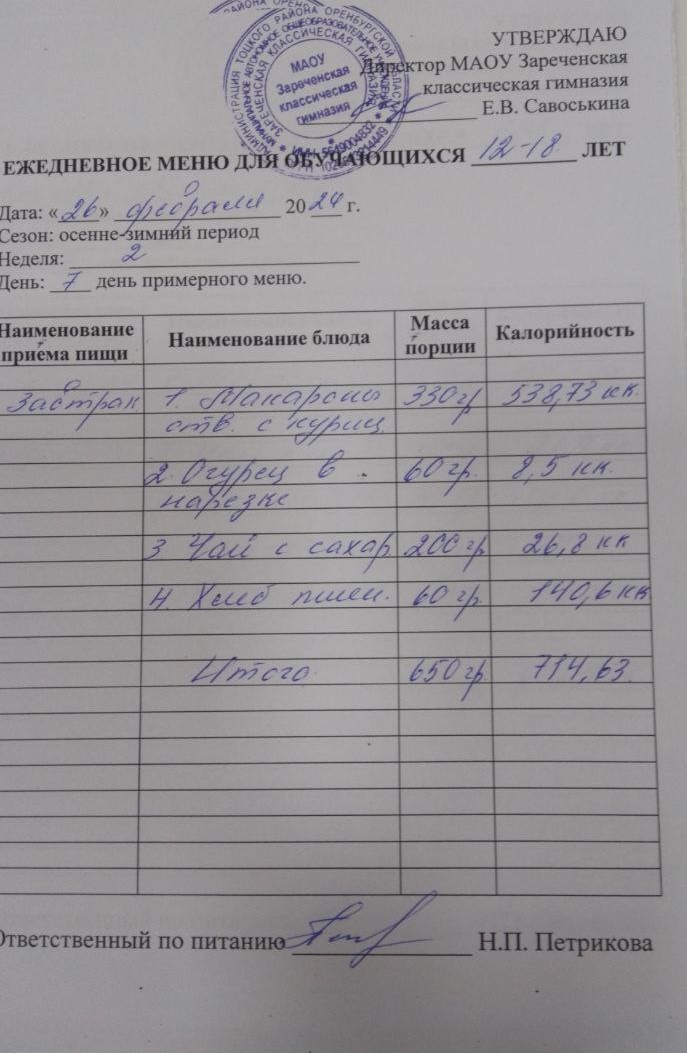 УТВЕРЖДАЮ
Директор МАОУ Зареченская
классическая гимназия
Е.В. Савоськина
МАОУ
Зареченская
классическая
гимназия
ЕЖЕДНЕВНОЕ МЕНЮ ДЛЯ ОБУЧАЮЩИХСЯ 12-18 ЛЕТ
Дата: «26» февраля 2024 г.
Сезон: осенне-зимний период
Неделя: 2
День: 7 день примерного меню.
Наименование приема пищи Наименование блюда Масса порции Калорийность
Завтрак 1. Макароны 330гр 538,73 кк.
отв. с куриц.
2. Огурец в 60гр. 8,5 кк.
нарезке
3 Чай с сахар 200гр 26,8 кк
4. Хлеб пшен. 60гр. 140,6 кк
Итого 650гр. 714,63.
Ответственный по питанию Н.П. Петрикова